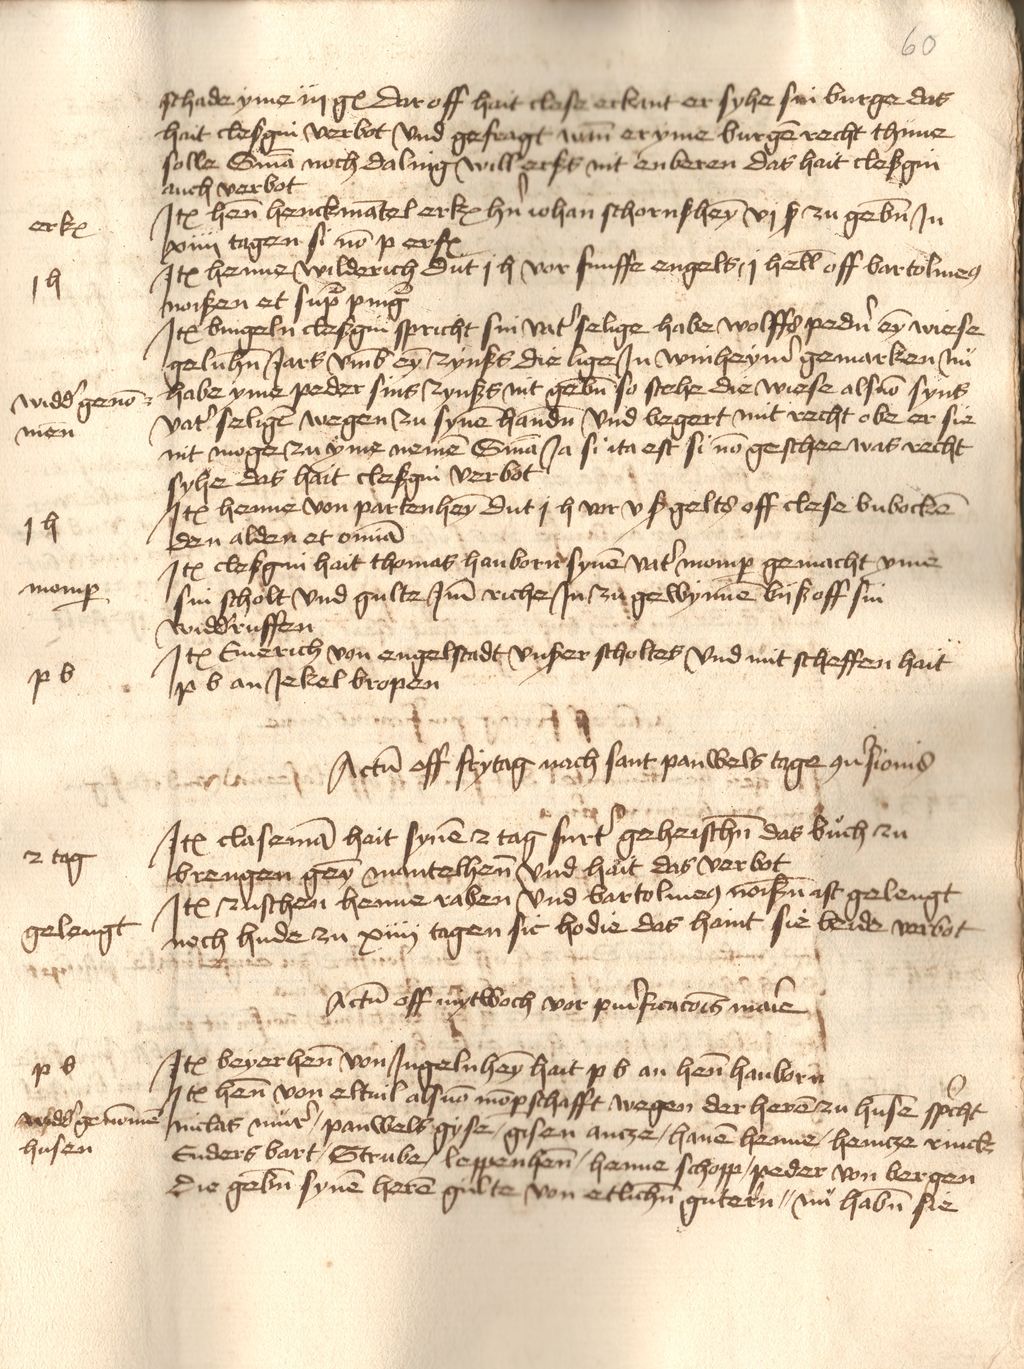 60
schade yme iij gℓ dar off hait clese erkant er syhe sin burge das
hait cleßgin verbot Vnd gefragt wan er yme burgē recht thune
solle Sniā noch daling will erßs nit enberen das hait cleßgin
auch verbot
erkℓ
Itℓ henn̄ henckmātel erkℓ hn̄ iohan schornßheȳ vj ß zu gebn̄ In
xiiij tagen si nō p erfℓ
j h
Itℓ henne wilderich dut j h vor funffe engels j hell̄ off bartolmeꝰ
noißen et sup̄ pīnḡ
Itℓ bingeln cleßgin spricht sin vat' selige habe wolffs pedn̄ eȳ wiese
geluhn̄ Jars vmb eȳ zynßs die lige In winheym' gemarken nū
widd' genō-
men
habe yme peder sins zynßs nit gebn̄ so stehe die wiese alsnō syns
vat' seligē wegen zu synē handn̄ Vnd begert mit recht obe er sie
nit moge zu yme nemē Sniā Ja si ita est si nō geschee was recht
syhe das hait cleßgin verbot
j h
Itℓ henne von partenheȳ dut j h vor v ß gelts off clese bubockē
den alden et om̄iā
momꝑ
Itℓ cleßgin hait thomas hanborn synē vat' momꝑ gemacht vme
sin scholt vnd gulte Inn̄ riche In zu gewynnē biß off sin
widd'ruffen
p b
Itℓ Emerich von engelstadt vnßer scholtes Vnd mit scheffen hait
p b an Jekel bropen
Actū off frytag nach sant pauwels tage ꝯu'sionis
2 tag
Itℓ clasemā hait synē 2 tag furt' geheischn̄ das bůch zu
brengen geȳ mantelhenn̄ Vnd hait das verbot
gelengt
Itℓ zuschen henne raben Vnd bartolmeꝰ noißn̄ ist gelengt
noch hude zu xiiij tagen sic hodie das haint sie beide verbot
Actū off mytwoch vor pur'ficacōis mar'e
p b
Itℓ beyerhenn̄ von Ingelnheȳ hait p b an henn̄ hanborn
widd' genōmē
husen
Itℓ henn̄ von eltuil alsnō mōpschafft wegen der herē zu husē spr'cht
niclas mur' / pauwels gyse / gisen antze / hanē henne / heintze rinck
Enders bart / Strube / leppenhenn̄ / henne schopp / peder von bergen
die gebn̄ synē herē gulte von etlichn̄ gutern // nū habn̄ sie